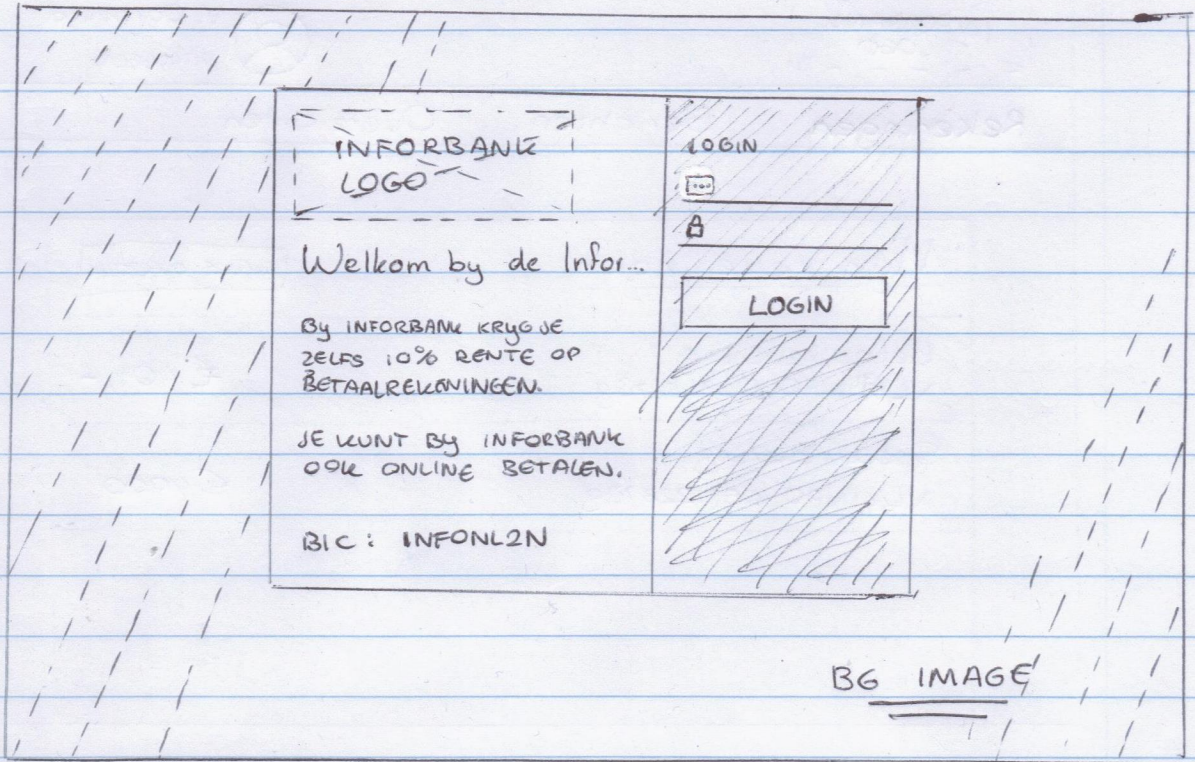 INFORBANK
LOGO
Welkom by de Infor...
By INFORBANK KRYG JE
ZELFS 10% RENTE OP
BETAALREKENINGEN.
JE KUNT BY INFORBANK
OOK ONLINE BETALEN.
BIC: INFONL2N
LOGIN
LOGIN
BG IMAGE